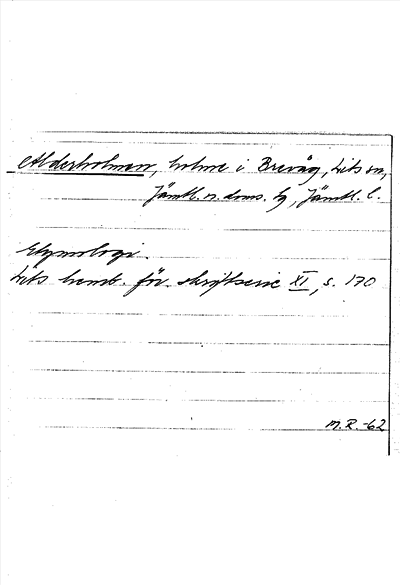 Alderholmen, holme i Brevåg, Lits sn,
Jämtl. n. doms. tg, Jämtl. l.
Etymologi.
Lits hemb. för. skriftserie XI, s. 170
M.R.-62